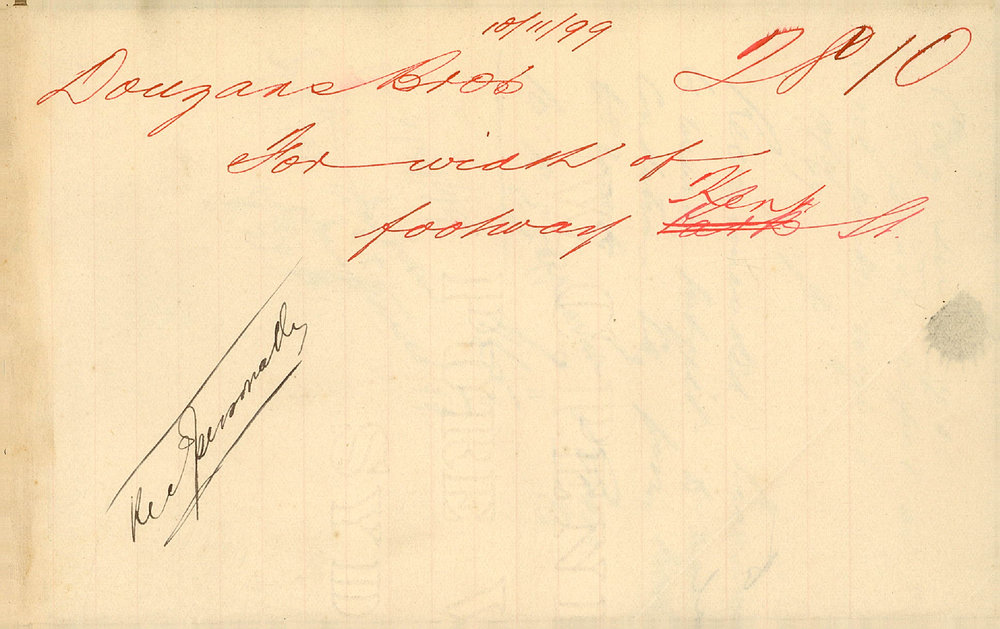 10/11/99
Douzans Bros 2810
For width of
footway Kent St.
Rec Personally